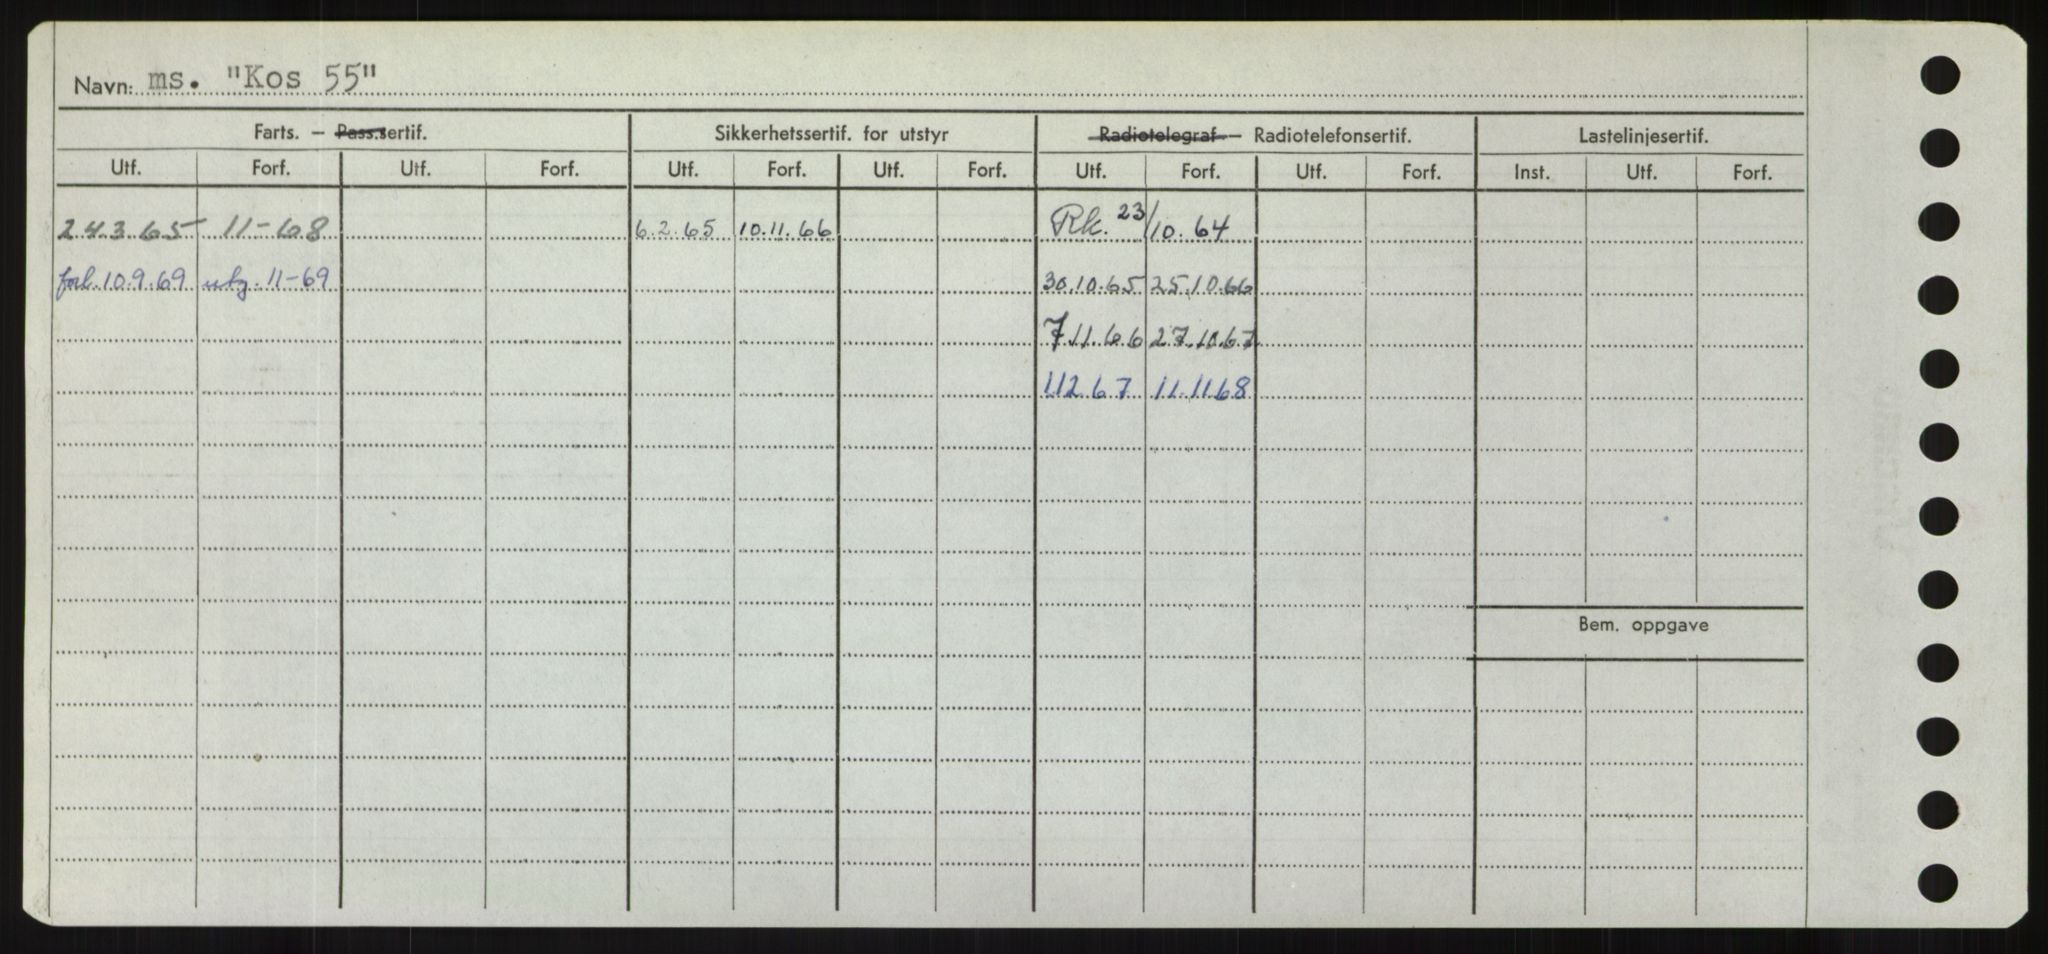 Navn: ms. "Kos 55"
Farts. – Pass.sertif. Sikkerhetssertif. for utstyr Radiotelegraf – Radiotelefonsertif. Lastelinjesertif.
Utf. Forf. Utf. Forf. Utf. Forf. Utf. Forf. Utf. Forf. Utf. Forf. Inst. Utf. Forf.
24.3.65 11-68 6.2.65 10.11.66 Rk. 23/10.64
forl. 10.9.69 utg. 11-69 30.10.65 25.10.66
7.11.66 27.10.67
1.12.67 11.11.68
Bem. oppgave